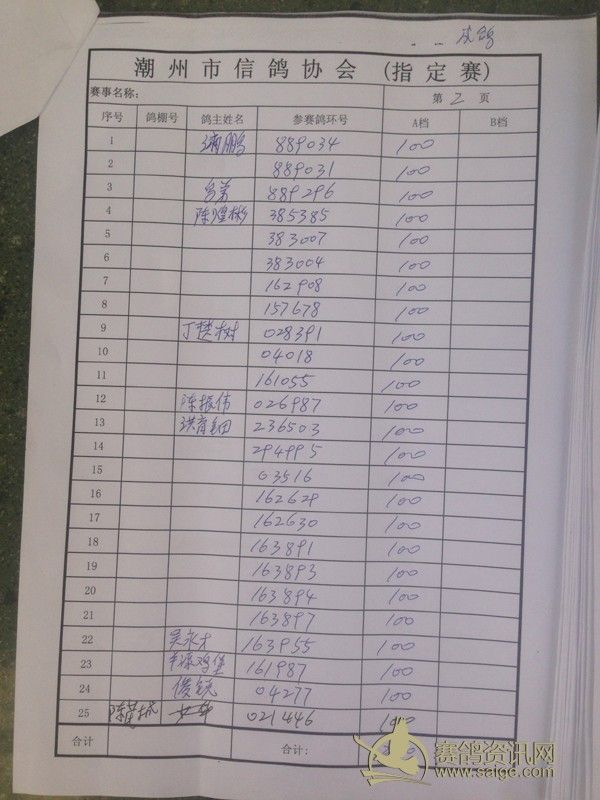 成鸽
潮州市信鸽协会 (指定赛)
赛事名称: 第 2 页
序号 鸽棚号 鸽主姓名 参赛鸽环号 A档 B档
1 鹏 889034 100
2 889031 100
3 889296 100
4 陈煌彬 385385 100
5 383007 100
6 383004 100
7 162908 100
8 157678 100
9 丁楚树 028391 100
10 04018 100
11 161055 100
12 陈振伟 026987 100
13 洪育 236503 100
14 294995 100
15 03516 100
16 162629 100
17 162630 100
18 163891 100
19 163893 100
20 163894 100
21 163897 100
22 吴永才 163955 100
23 鸡堡 161987 100
24 俊锐 04277 100
25 陈 021446 100
合计 合计:
赛鸽资讯网
www.saige.com